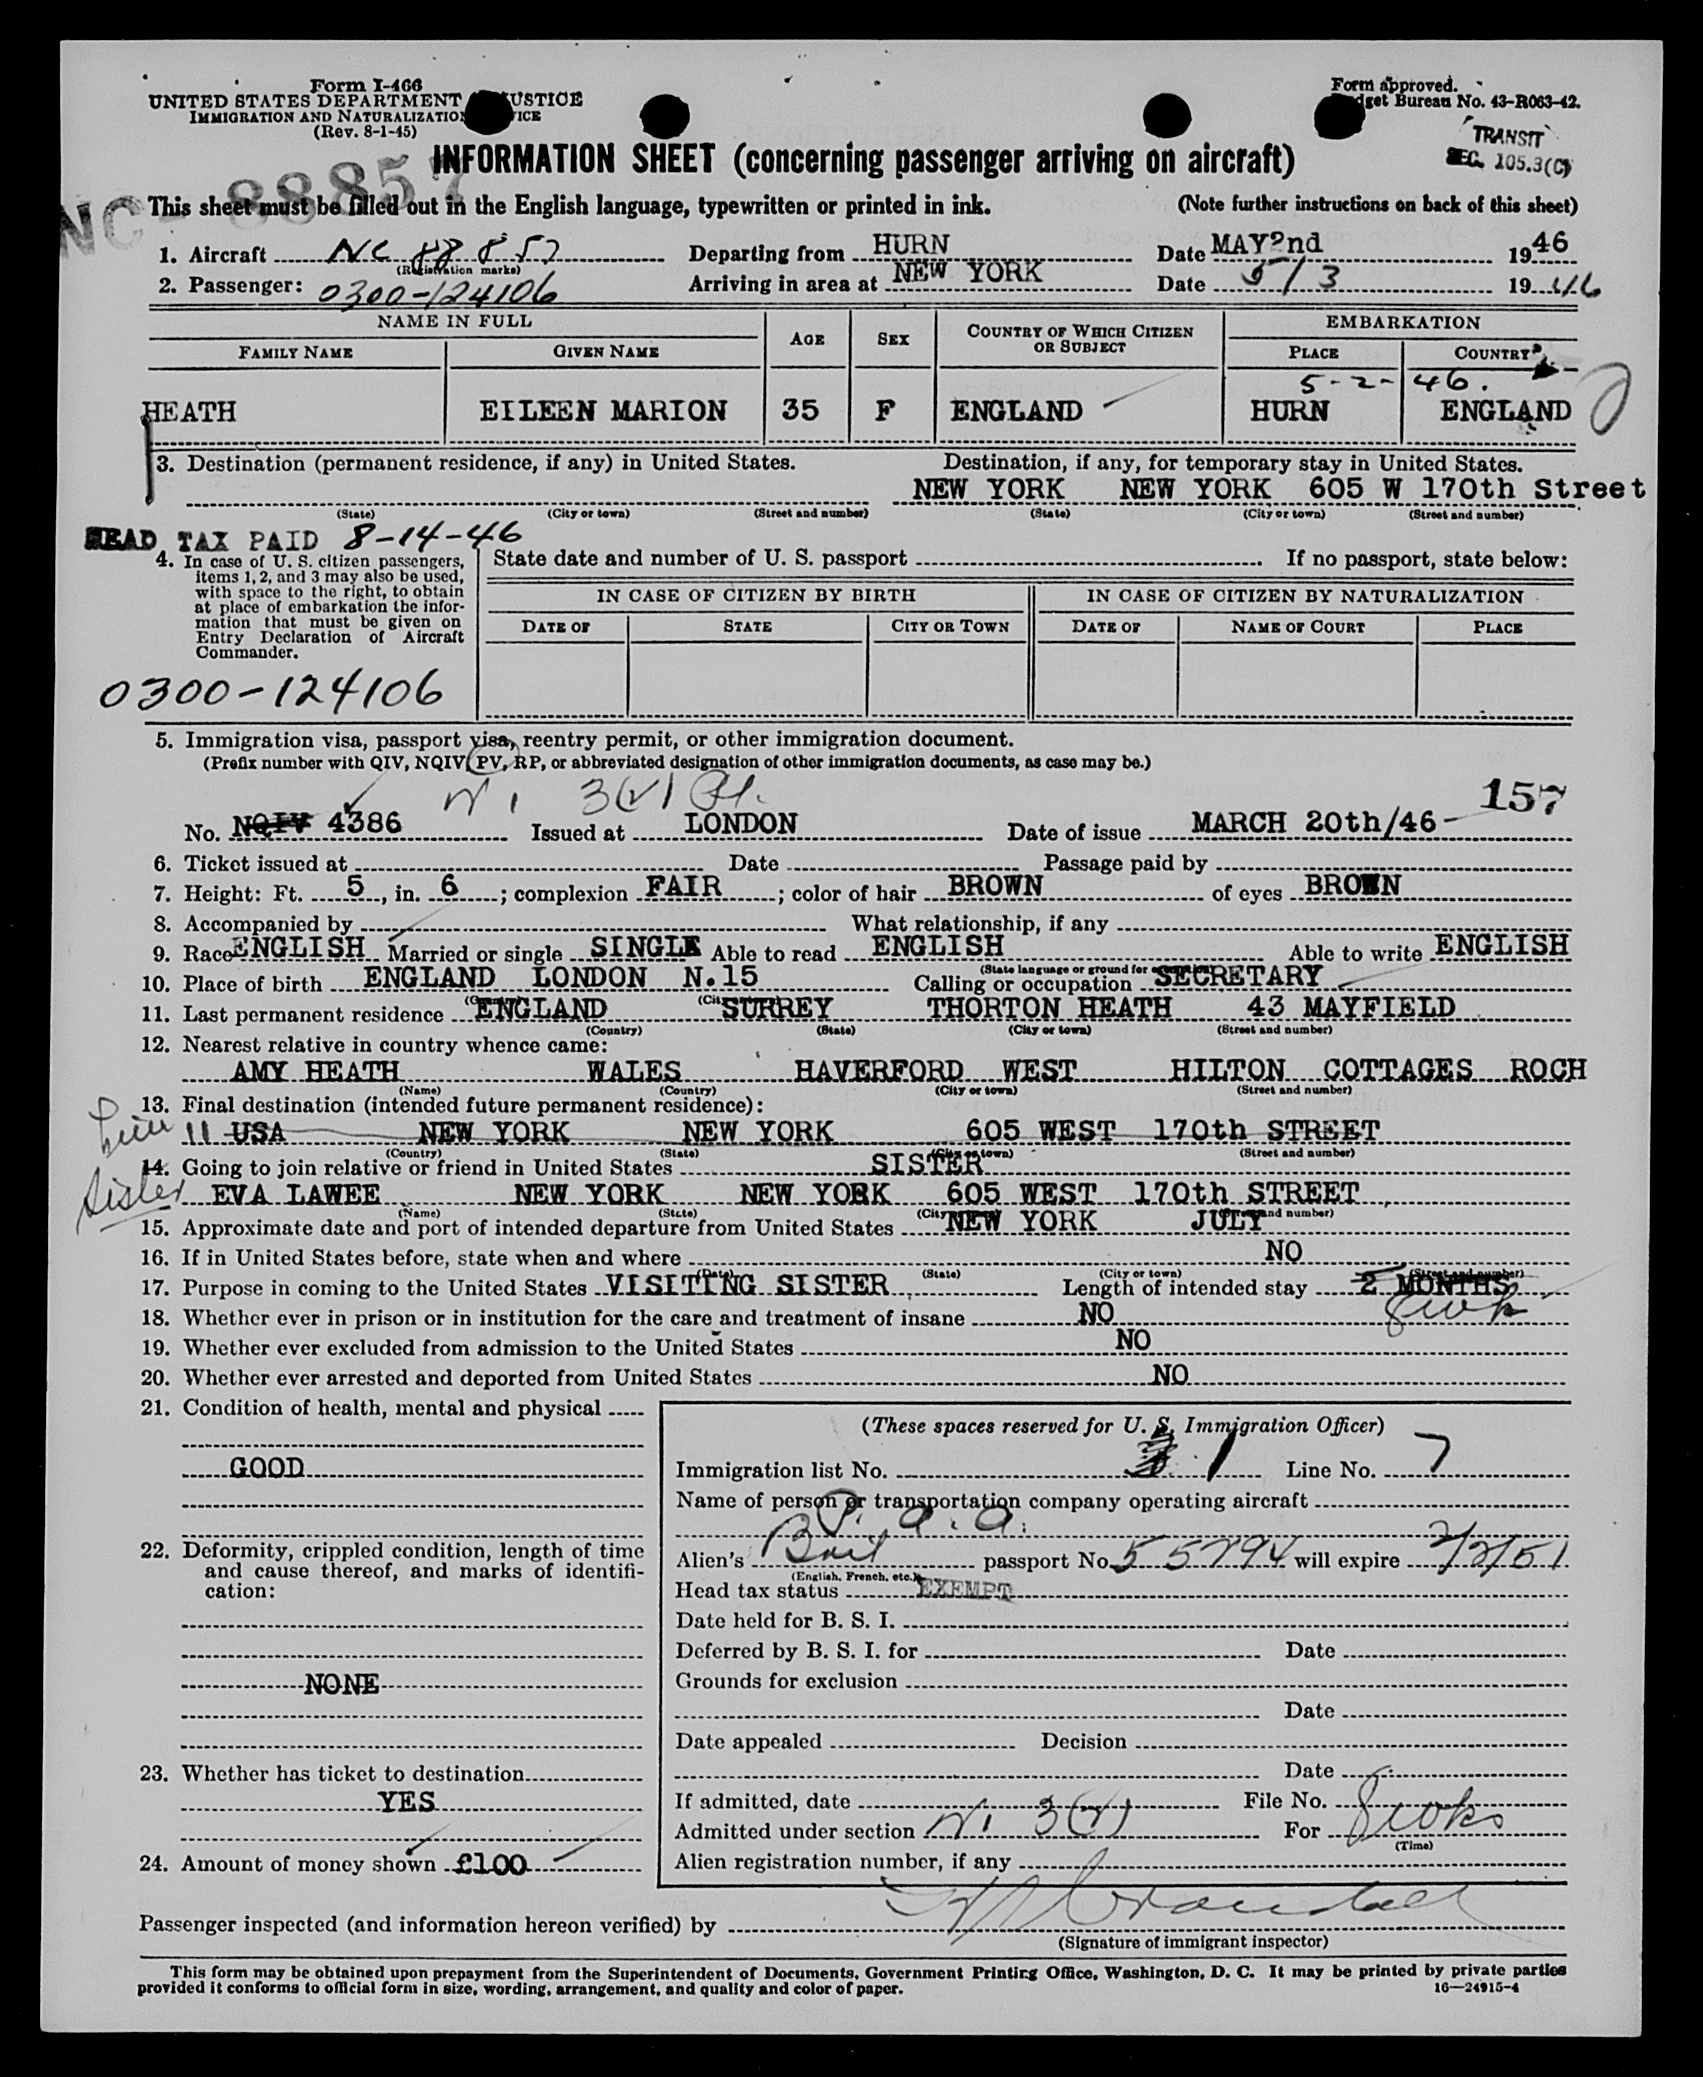 Form I-466
UNITED STATES DEPARTMENT JUSTICE
IMMIGRATION AND NATURALIZATION
(Rev. 8-1-45)
Form approved.
Budget Bureau No. 43-R063-42.
TRANSIT
SEC. 105.3(C)
NC-88857
INFORMATION SHEET (concerning passenger arriving on aircraft)
This sheet must be filled out in the English language, typewritten or printed in ink. (Note further instructions on back of this sheet)
1. Aircraft NC 88857 Departing from HURN Date MAY 2nd 1946
(Registration marks)
2. Passenger: 0300-124106 Arriving in area at NEW YORK Date 5/3 1946
NAME IN FULL AGE SEX COUNTRY OF WHICH CITIZEN OR SUBJECT EMBARKATION
FAMILY NAME GIVEN NAME PLACE COUNTRY
5-2-46.
HEATH EILEEN MARION 35 F ENGLAND HURN ENGLAND
3. Destination (permanent residence, if any) in United States. Destination, if any, for temporary stay in United States.
NEW YORK NEW YORK 605 W 170th Street
(State) (City or town) (Street and number) (State) (City or town) (Street and number)
HEAD TAX PAID 8-14-46
4. In case of U. S. citizen passengers,
items 1, 2, and 3 may also be used,
with space to the right, to obtain
at place of embarkation the infor-
mation that must be given on
Entry Declaration of Aircraft
Commander.
0300-124106
State date and number of U. S. passport If no passport, state below:
IN CASE OF CITIZEN BY BIRTH IN CASE OF CITIZEN BY NATURALIZATION
DATE OF STATE CITY OR TOWN DATE OF NAME OF COURT PLACE
5. Immigration visa, passport visa, reentry permit, or other immigration document.
(Prefix number with QIV, NQIV, PV, RP, or abbreviated designation of other immigration documents, as case may be.)
157
No. NQIV 4386 Issued at LONDON Date of issue MARCH 20th/46
6. Ticket issued at Date Passage paid by
7. Height: Ft. 5, in. 6; complexion FAIR; color of hair BROWN of eyes BROWN
8. Accompanied by What relationship, if any
9. Race ENGLISH Married or single SINGLE Able to read ENGLISH Able to write ENGLISH
10. Place of birth ENGLAND LONDON N.15 Calling or occupation SECRETARY
11. Last permanent residence ENGLAND SURREY THORTON HEATH 43 MAYFIELD
(Country) (State) (City or town) (Street and number)
12. Nearest relative in country whence came:
AMY HEATH WALES HAVERFORD WEST HILTON COTTAGES ROCH
(Name) (Country) (City or town) (Street and number)
13. Final destination (intended future permanent residence):
11 USA NEW YORK NEW YORK 605 WEST 170th STREET
(Country) (State) (City or town) (Street and number)
14. Going to join relative or friend in United States SISTER
Sister EVA LAWEE NEW YORK NEW YORK 605 WEST 170th STREET
(Name) (State) (City or town) (Street and number)
15. Approximate date and port of intended departure from United States NEW YORK JULY
16. If in United States before, state when and where NO
(Date) (State) (City or town) (Street and number)
17. Purpose in coming to the United States VISITING SISTER Length of intended stay 2 MONTHS
8 wk
18. Whether ever in prison or in institution for the care and treatment of insane NO
19. Whether ever excluded from admission to the United States NO
20. Whether ever arrested and deported from United States NO
21. Condition of health, mental and physical
GOOD
22. Deformity, crippled condition, length of time
and cause thereof, and marks of identifi-
cation:
NONE
23. Whether has ticket to destination
YES
24. Amount of money shown £100
(These spaces reserved for U. S. Immigration Officer)
Immigration list No. 1 Line No. 7
Name of person or transportation company operating aircraft
P. a. a.
Alien's Brit passport No. 55294 will expire 2/2/51
(English, French, etc.)
Head tax status EXEMPT
Date held for B. S. I.
Deferred by B. S. I. for Date
Grounds for exclusion
Date
Date appealed Decision
Date
If admitted, date File No.
Admitted under section 3(2) For 8 wks
(Time)
Alien registration number, if any
Passenger inspected (and information hereon verified) by
(Signature of immigrant inspector)
This form may be obtained upon prepayment from the Superintendent of Documents, Government Printing Office, Washington, D. C. It may be printed by private parties
provided it conforms to official form in size, wording, arrangement, and quality and color of paper. 16—24915-4